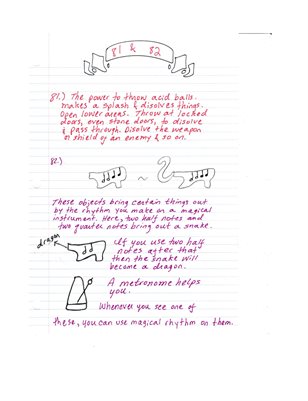 81 & 82
81.) The power to throw acid balls.
makes a splash & disolves things.
Open lower areas. Throw at locked
doors, even stone doors, to disolve
& pass through. Disolve the weapon
or shield of an enemy & so on.
82.)
These objects bring certain things out
by the rhythm you make on a magical
instrument. Here, two half notes and
two quarter notes bring out a snake.
dragon
If you use two half
notes after that
then the snake will
become a dragon.
A metronome helps
you.
Whenever you see one of
these, you can use magical rhythm on them.